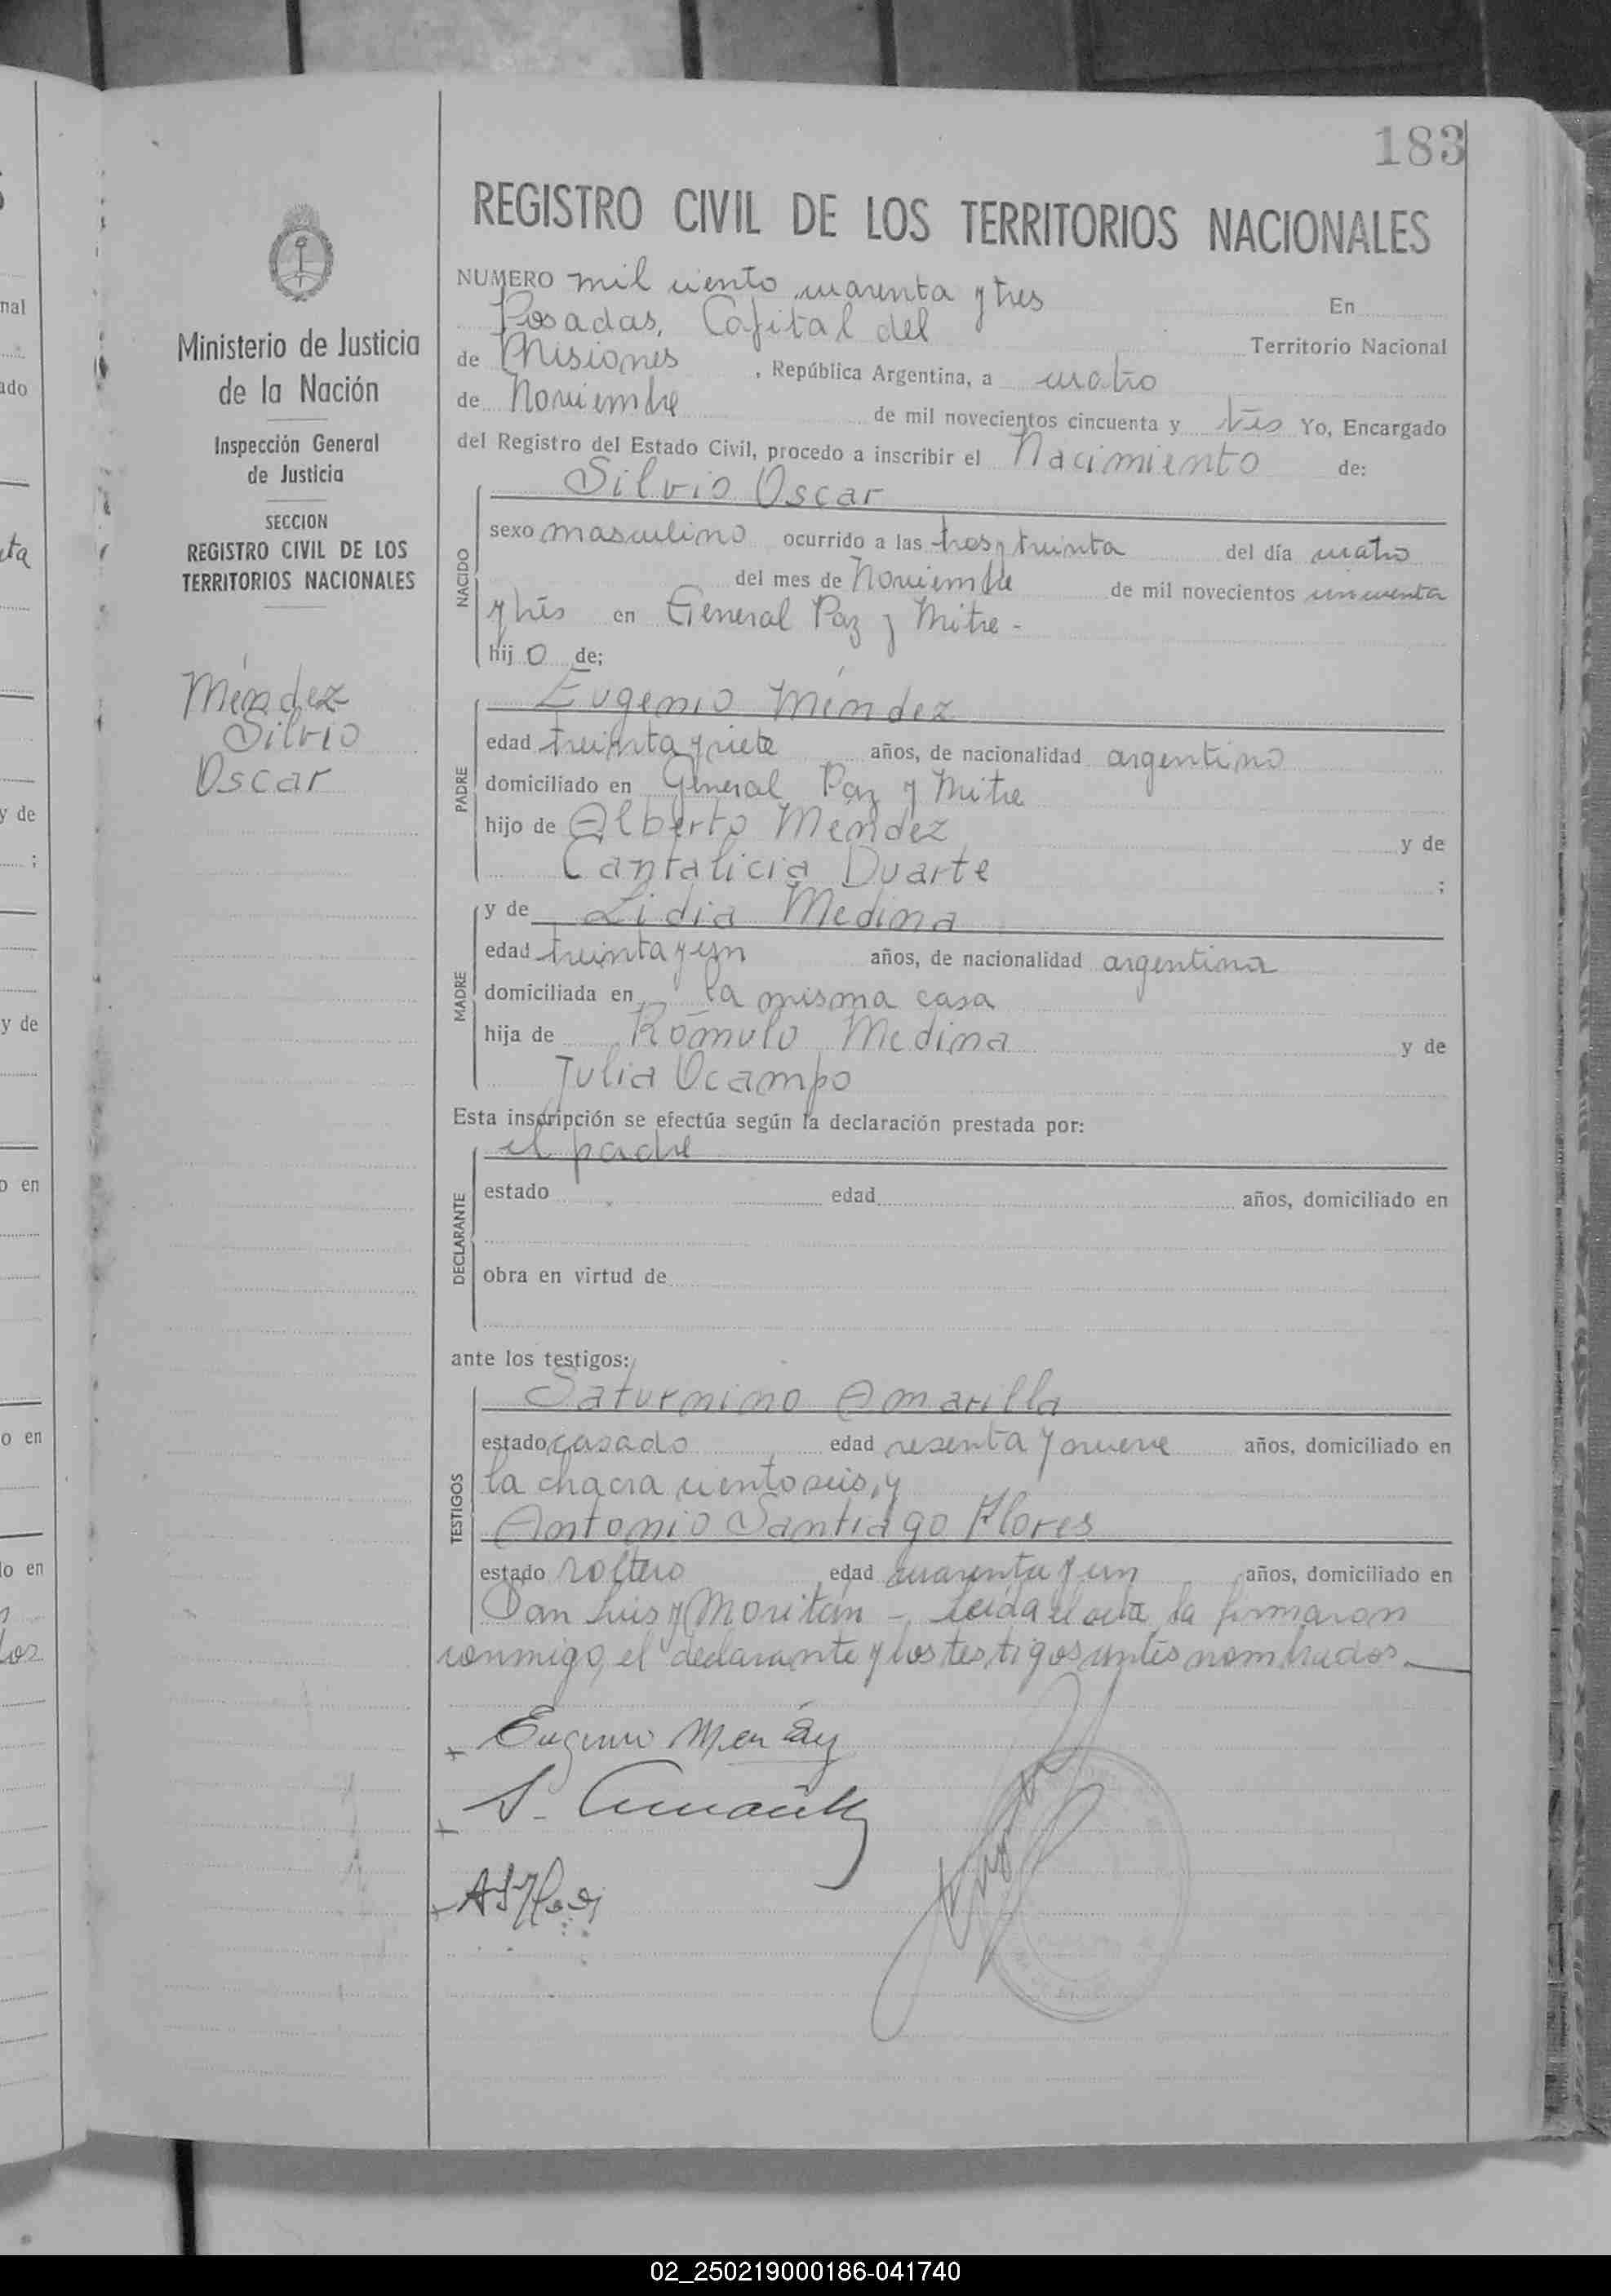 183
REGISTRO CIVIL DE LOS TERRITORIOS NACIONALES
Ministerio de Justicia
de la Nación
Inspección General
de Justicia
SECCION
REGISTRO CIVIL DE LOS
TERRITORIOS NACIONALES
Méndez
Silvio
Oscar
NUMERO mil ciento cuarenta y tres En
Posadas, Capital del Territorio Nacional
de Misiones, República Argentina, a cuatro
de Noviembre de mil novecientos cincuenta y tres Yo, Encargado
del Registro del Estado Civil, procedo a inscribir el Nacimiento de:
Silvio Oscar
NACIDO
sexo masculino ocurrido a las tres y treinta del día cuatro
del mes de Noviembre de mil novecientos cincuenta
y tres en General Paz y Mitre -
hijo de;
Eugenio Méndez
PADRE
edad treinta y siete años, de nacionalidad argentino
domiciliado en General Paz y Mitre
hijo de Alberto Méndez y de
Cantalicia Duarte ;
y de Lidia Medina
MADRE
edad treinta y un años, de nacionalidad argentina
domiciliada en la misma casa
hija de Rómulo Medina y de
Julia Ocampo
Esta inscripción se efectúa según la declaración prestada por:
el padre
DECLARANTE
estado edad años, domiciliado en
obra en virtud de
ante los testigos:
Saturnino Amarilla
TESTIGOS
estado casado edad sesenta y nueve años, domiciliado en
la chacra ciento seis, y
Antonio Santiago Flores
estado soltero edad cuarenta y un años, domiciliado en
San Luis y Moritán - Leída el acta, la firmaron
conmigo, el declarante y los testigos antes nombrados.
Eugenio Mendez
S. Amarilla
A S Flores
02_250219000186-041740